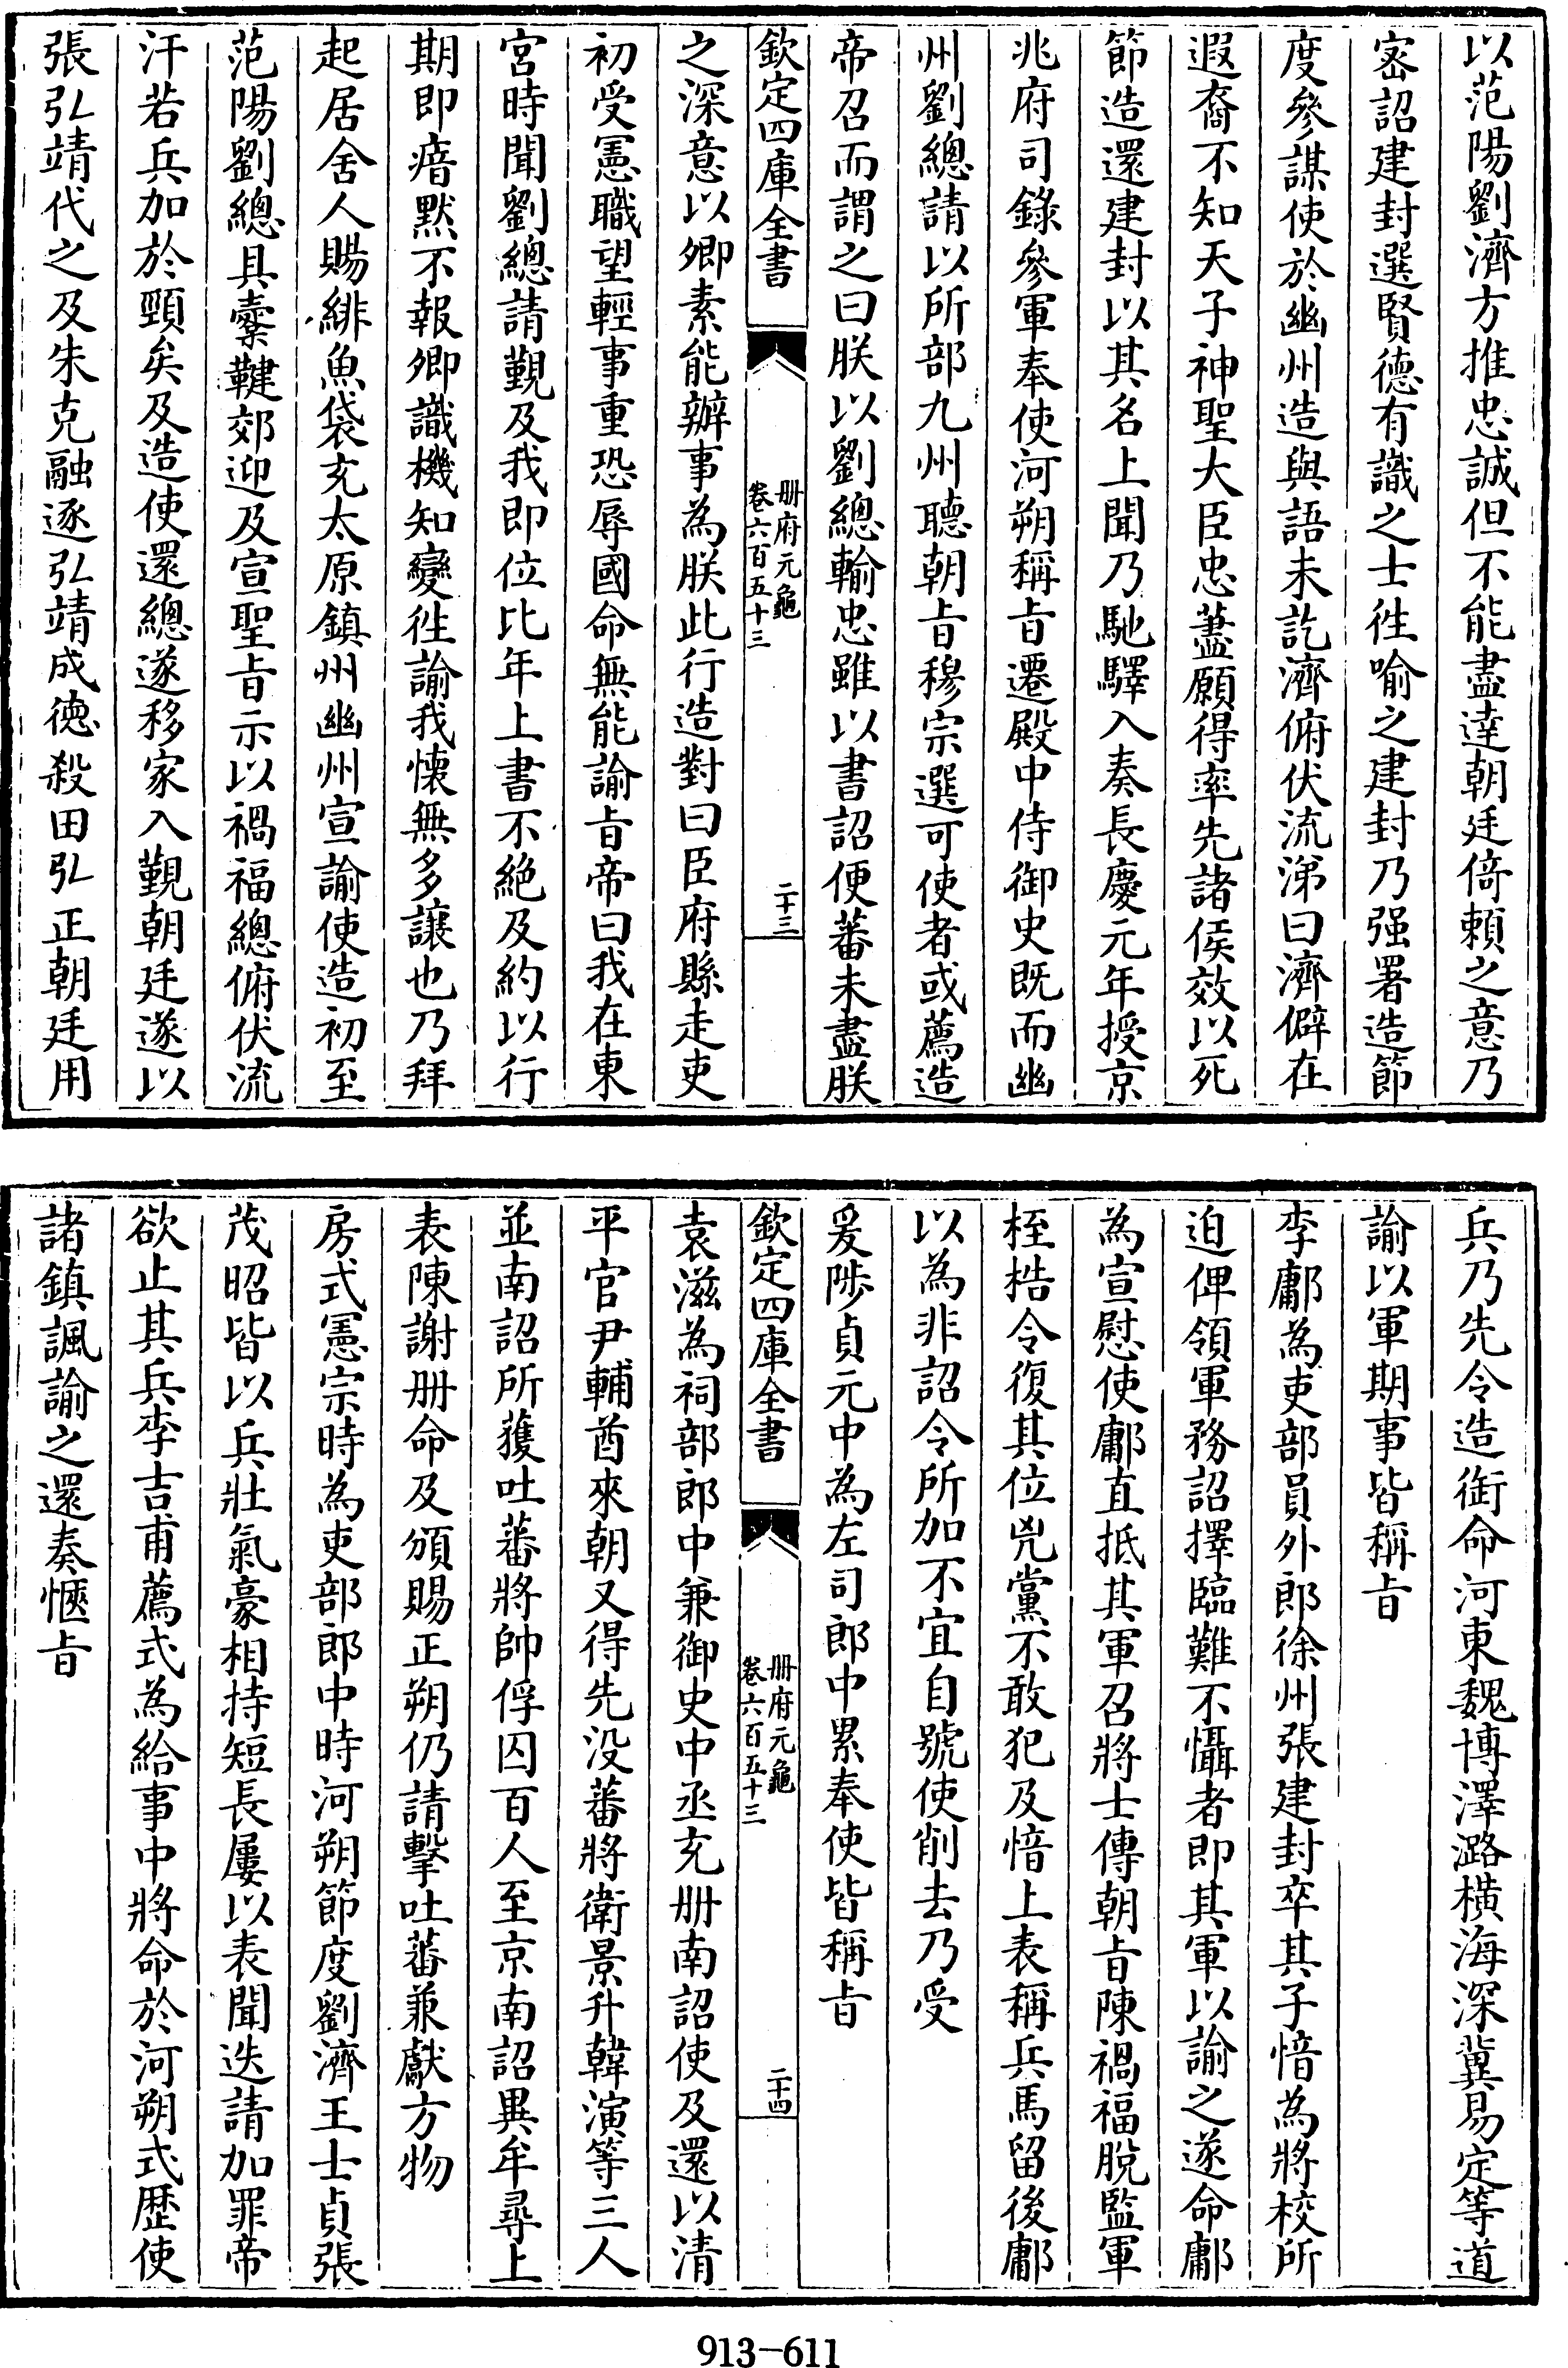 以范陽劉濟方推忠誠但不能盡達朝廷倚賴之意乃
宻詔建封選賢德有識之士徃喻之建封乃强署造節
度參謀使於幽州造與語未訖濟俯伏流涕曰濟僻在
遐裔不知天子神聖大臣忠藎願得率先諸侯效以死
節造還建封以其名上聞乃馳驛入奏長慶元年授京
兆府司錄參軍奉使河朔稱㫖遷殿中侍御史既而幽
州劉總請以所部九州聽朝㫖穆宗選可使者或薦造
帝召而謂之曰朕以劉總輸忠雖以書詔便蕃未盡朕
欽定四庫全書
册府元龜
卷六百五十三
二十三
之深意以卿素能辦事為朕此行造對曰臣府縣走吏
初受憲職望輕事重恐辱國命無能諭㫖帝曰我在東
宮時聞劉總請覲及我即位比年上書不絶及約以行
期即瘖默不報卿識機知變徃諭我懷無多讓也乃拜
起居舍人賜緋魚袋充太原鎮州幽州宣諭使造初至
范陽劉總具櫜鞬郊迎及宣聖㫖示以禍福總俯伏流
汗若兵加於頸矣及造使還總遂移家入覲朝廷遂以
張弘靖代之及朱克融逐弘靖成德殺田弘正朝廷用
兵乃先令造銜命河東魏博澤潞橫海深冀易定等道
諭以軍期事皆稱㫖
李鄘為吏部員外郎徐州張建封卒其子愔為將校所
迫俾領軍務詔擇臨難不懾者即其軍以諭之遂命鄘
為宣慰使鄘直抵其軍召將士傳朝㫖陳禍福脫監軍
桎梏令復其位兇黨不敢犯及愔上表稱兵馬留後鄘
以為非詔令所加不宜自號使削去乃受
爰陟貞元中為左司郎中累奉使皆稱㫖
欽定四庫全書
册府元龜
卷六百五十三
二十四
袁滋為祠部郎中兼御史中丞充册南詔使及還以清
平官尹輔酋來朝又得先没蕃將衛景升韓演等三人
並南詔所獲吐蕃將帥俘囚百人至京南詔異牟尋上
表陳謝册命及頒賜正朔仍請擊吐蕃兼獻方物
房式憲宗時為吏部郎中時河朔節度劉濟王士貞張
茂昭皆以兵壯氣豪相持短長屢以表聞迭請加罪帝
欲止其兵李吉甫薦式為給事中將命於河朔式歴使
諸鎮諷諭之還奏愜㫖
913-611